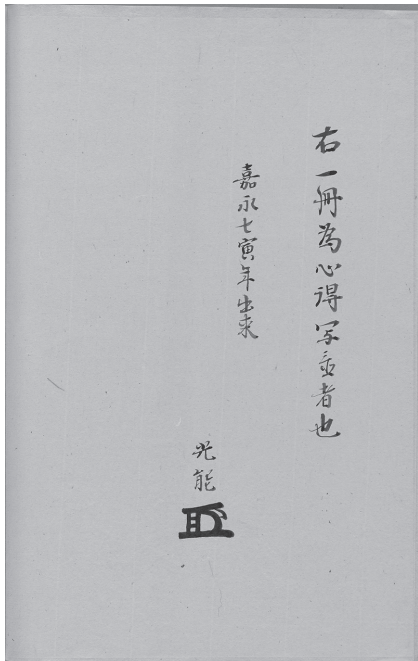 右一冊為心得写置者也
嘉永七寅年出来
光能